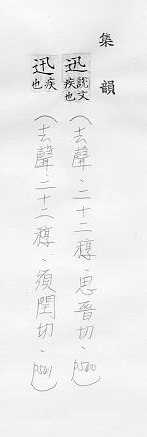 集韻
迅說文疾也(去聲·二十二稕·思晉切·p540)
迅疾也(去聲·二十二稕·須閏切·p541)